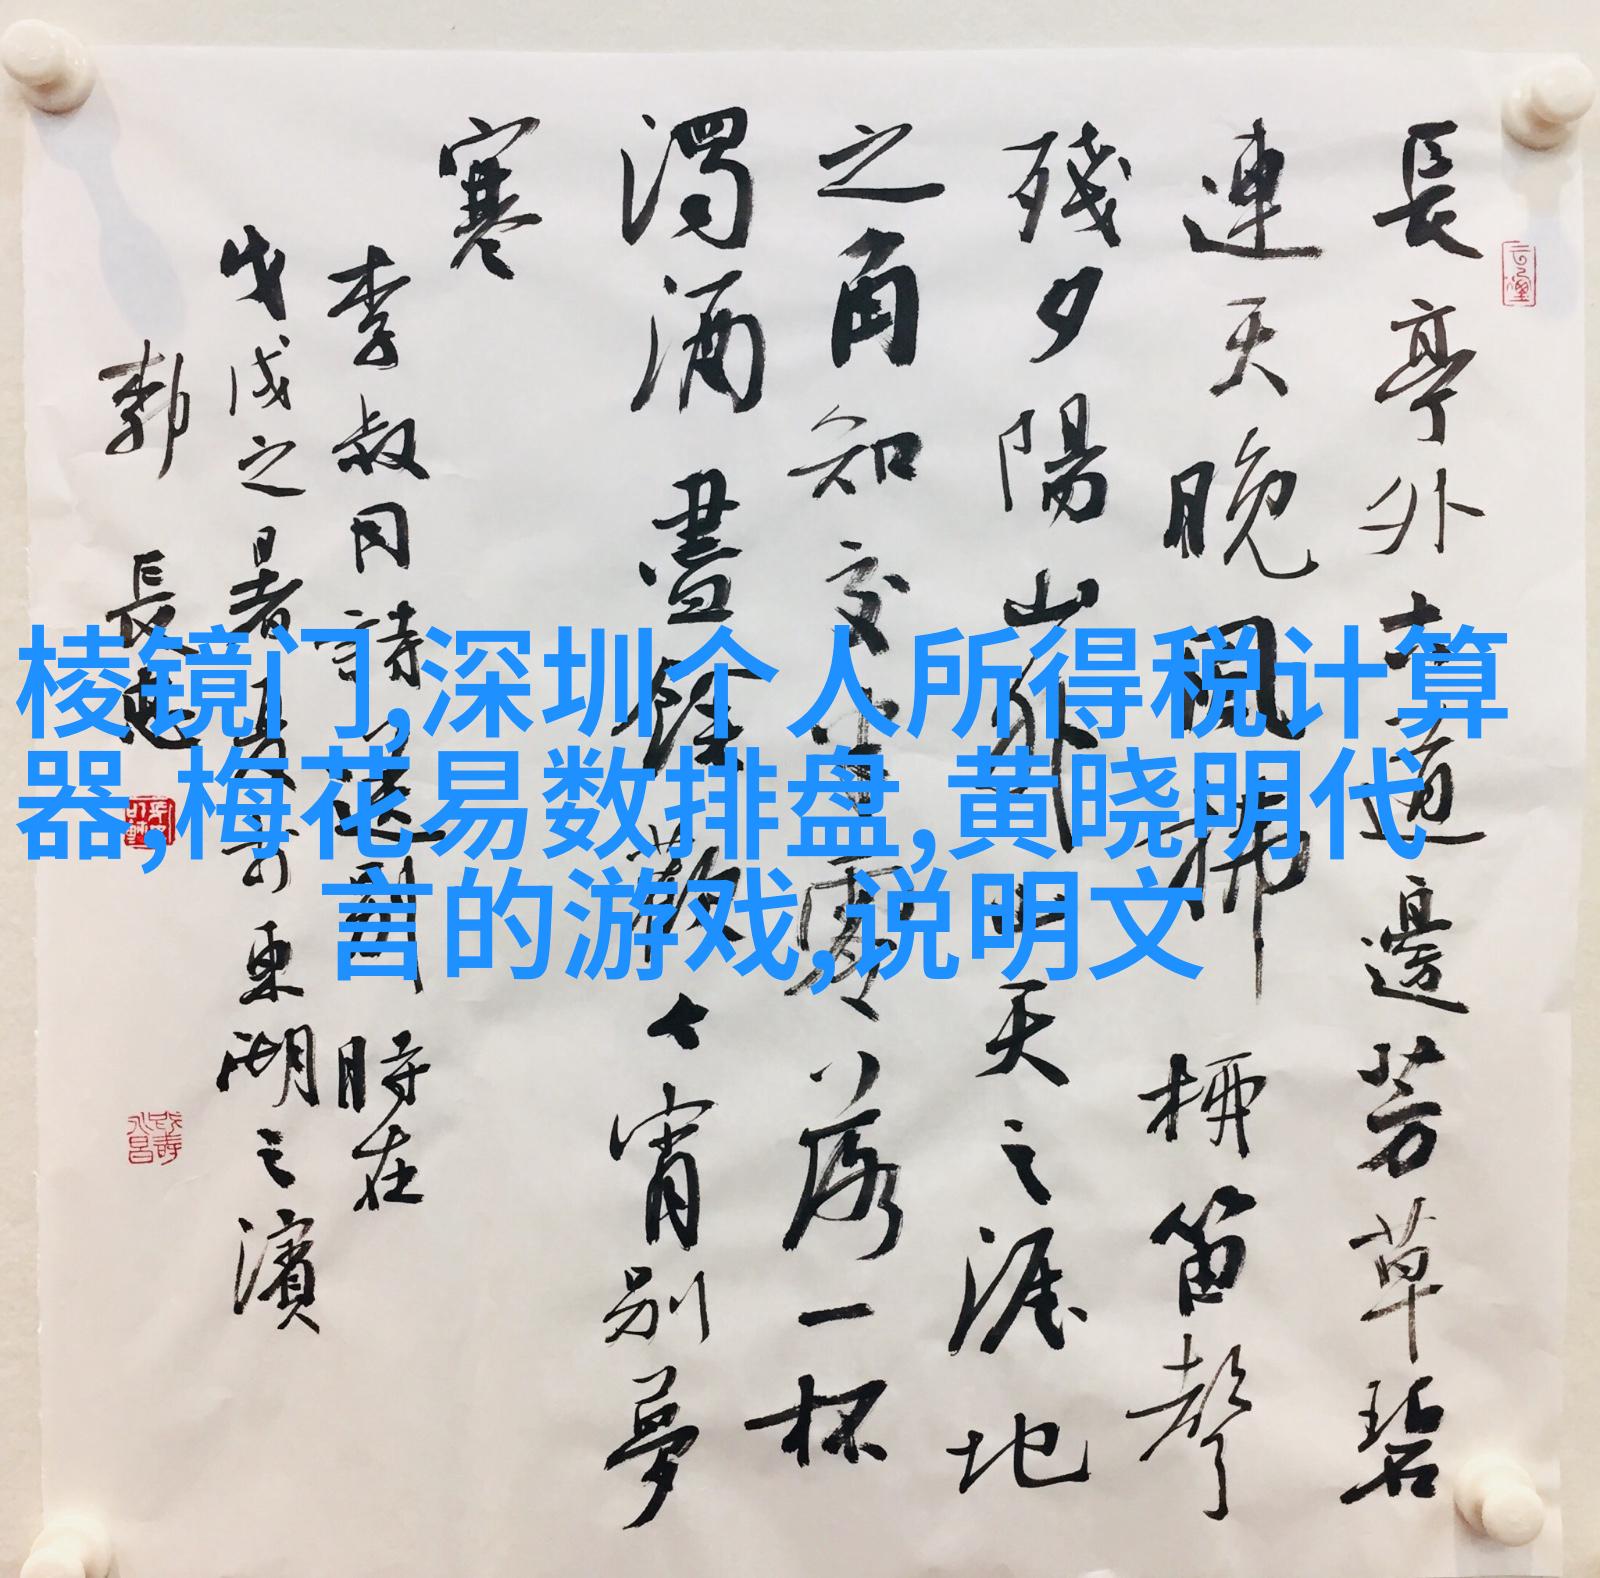 長亭外古道邊芳草碧
連天晚風拂柳笛聲
殘夕陽山外山天之涯地
之角知交半零落一杯
濁酒盡餘歡今宵別夢
寒
李叔同詩送別 時在
戊戌之暑 東湖之濱
長
棱镜门,深圳个人所得税计算
器,梅花易数排盘,黄晓明代
言的游戏,说明文